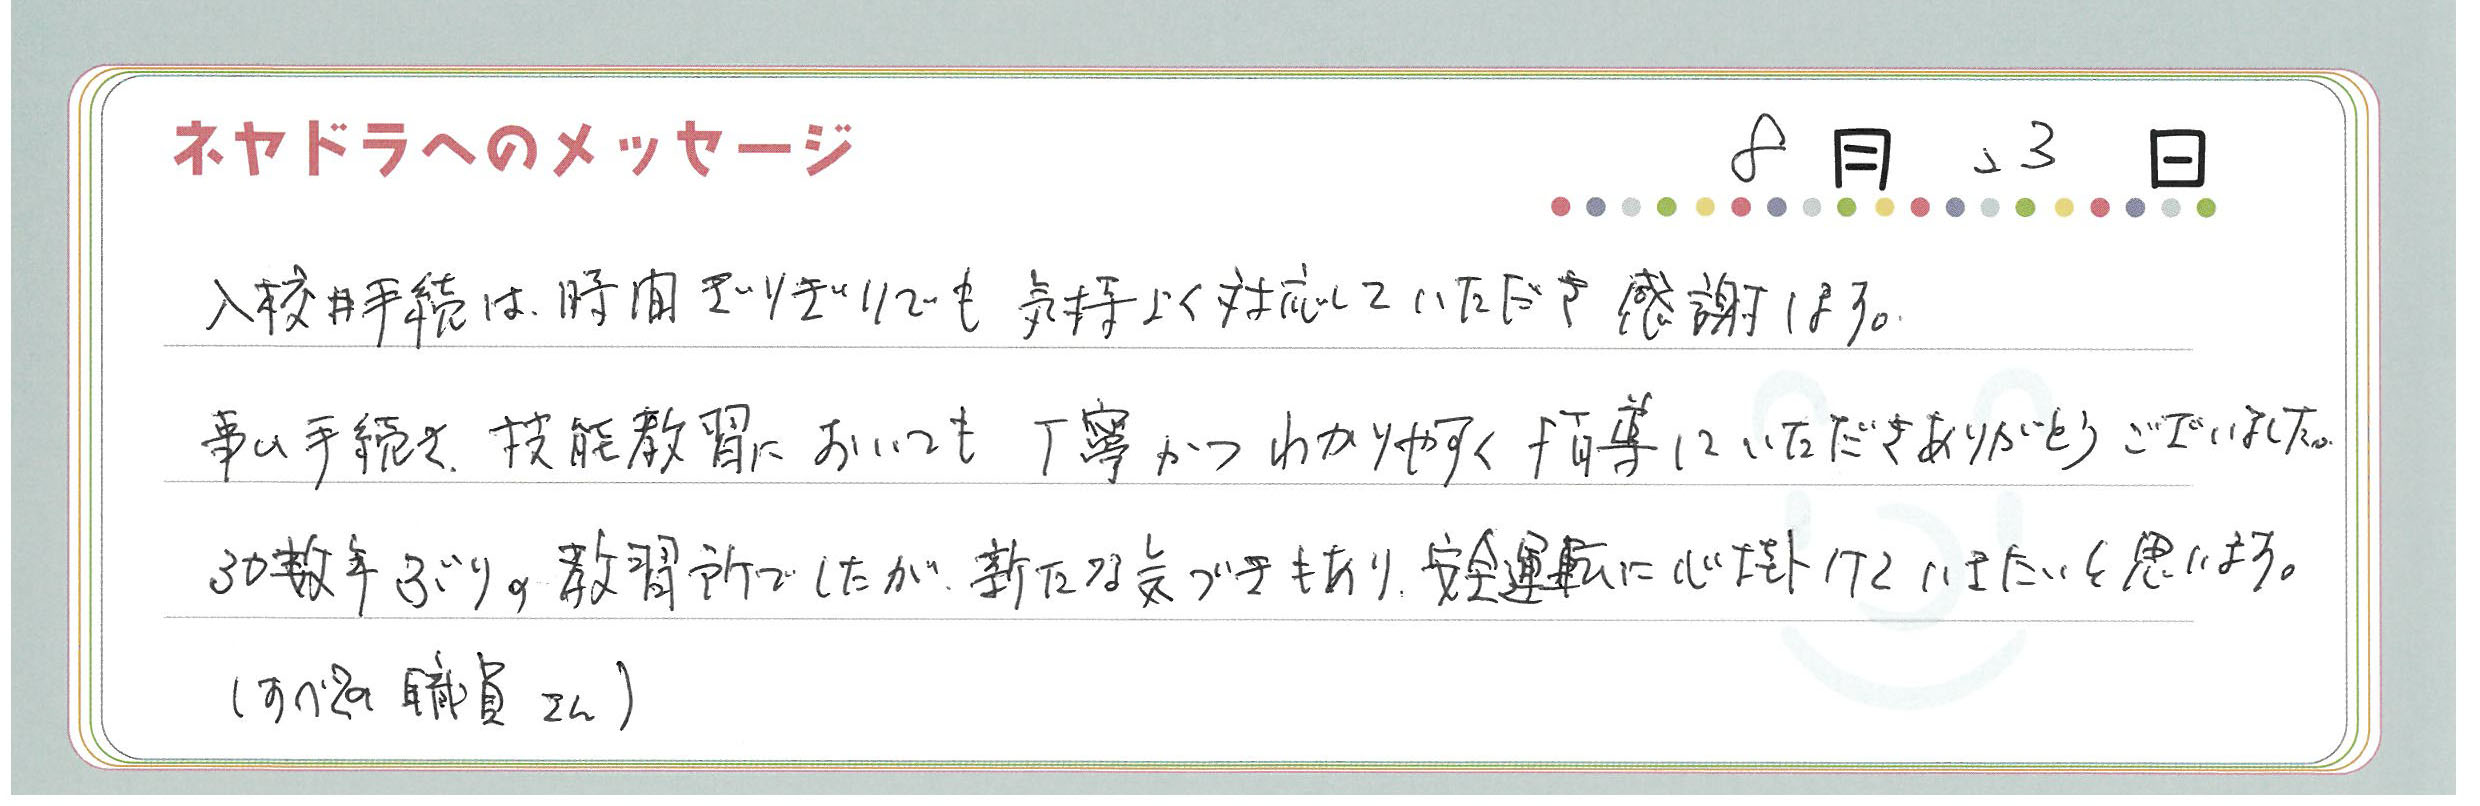 ネヤドラへのメッセージ
8月23日
入校時手続は、時間ぎりぎりでも気持よく対応していただき感謝します。
手続き、技能教習においても丁寧かつわかりやすく指導していただきありがとうございました。
30数年ぶりの教習所でしたが、新たな気づきもあり、安全運転に心掛けていきたいと思います。
(すべての職員さん)